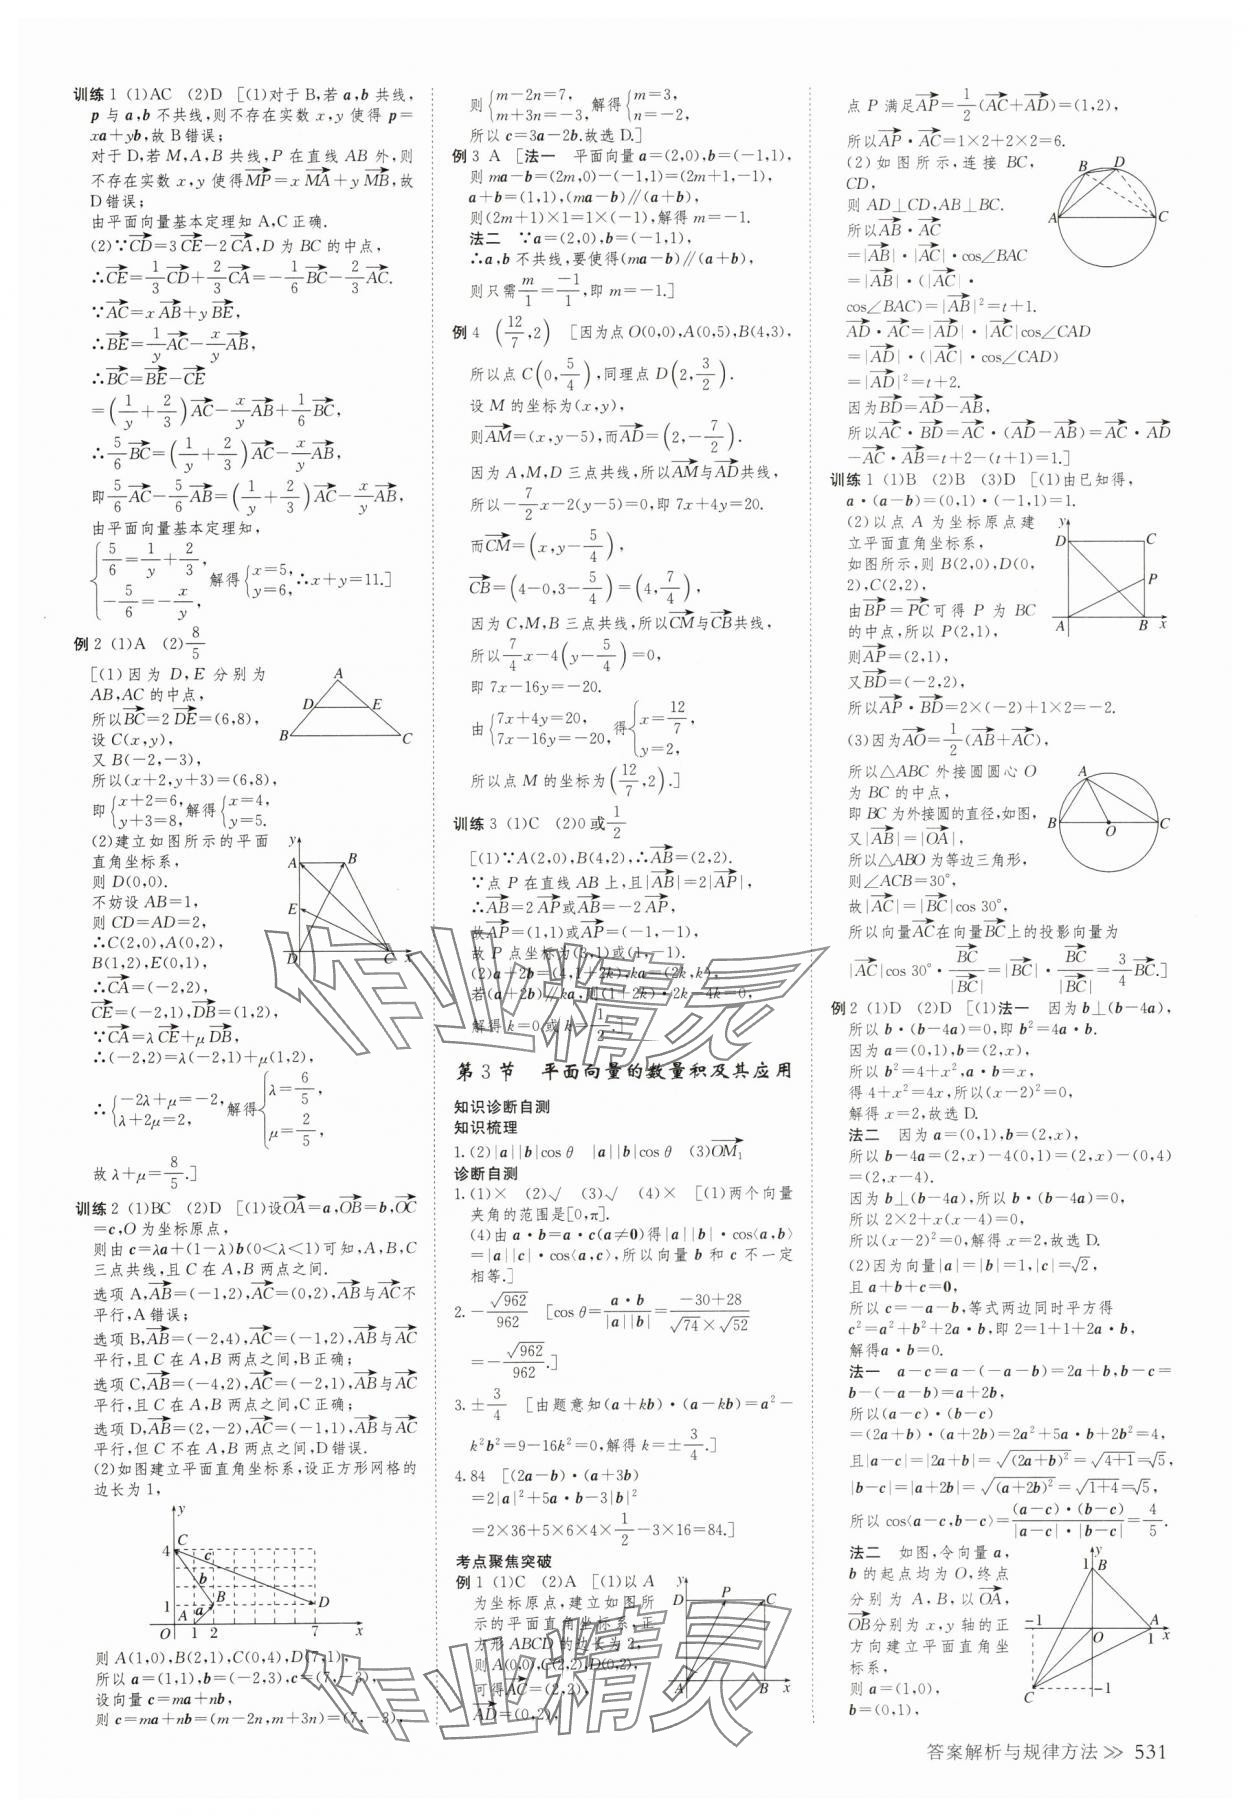 训练 1 (1)AC (2)D [(1)对于 B,若 a,b 共线,
p 与 a,b 不共线,则不存在实数 x,y 使得 p=
xa+yb,故 B 错误;
对于 D,若 M,A,B 共线,P 在直线 AB 外,则
不存在实数 x,y 使得$\overrightarrow{MP}$=x$\overrightarrow{MA}$+y$\overrightarrow{MB}$,故
D 错误;
由平面向量基本定理知 A,C 正确.
(2)∵$\overrightarrow{CD}$=3$\overrightarrow{CE}$-2$\overrightarrow{CA}$,D 为 BC 的中点,
∴$\overrightarrow{CE}$=$\frac{1}{3}$$\overrightarrow{CD}$+$\frac{2}{3}$$\overrightarrow{CA}$=-$\frac{1}{6}$$\overrightarrow{BC}$-$\frac{2}{3}$$\overrightarrow{AC}$.
∵$\overrightarrow{AC}$=x$\overrightarrow{AB}$+y$\overrightarrow{BE}$,
∴$\overrightarrow{BE}$=$\frac{1}{y}$$\overrightarrow{AC}$-$\frac{x}{y}$$\overrightarrow{AB}$,
∴$\overrightarrow{BC}$=$\overrightarrow{BE}$-$\overrightarrow{CE}$
=($\frac{1}{y}$+$\frac{2}{3}$)$\overrightarrow{AC}$-$\frac{x}{y}$$\overrightarrow{AB}$+$\frac{1}{6}$$\overrightarrow{BC}$,
∴$\frac{5}{6}$$\overrightarrow{BC}$=($\frac{1}{y}$+$\frac{2}{3}$)$\overrightarrow{AC}$-$\frac{x}{y}$$\overrightarrow{AB}$,
即$\frac{5}{6}$$\overrightarrow{AC}$-$\frac{5}{6}$$\overrightarrow{AB}$=($\frac{1}{y}$+$\frac{2}{3}$)$\overrightarrow{AC}$-$\frac{x}{y}$$\overrightarrow{AB}$,
由平面向量基本定理知,
{$\frac{5}{6}$=$\frac{1}{y}$+$\frac{2}{3}$, -$\frac{5}{6}$=-$\frac{x}{y}$, 解得{x=5, y=6, ∴x+y=11.]
例 2 (1)A (2)$\frac{8}{5}$
[(1)因为 D,E 分别为
AB,AC 的中点,
所以$\overrightarrow{BC}$=2$\overrightarrow{DE}$=(6,8),
设 C(x,y),
又 B(-2,-3),
所以(x+2,y+3)=(6,8),
即{x+2=6, y+3=8, 解得{x=4, y=5.
A
D E
B C
(2)建立如图所示的平面
直角坐标系,
则 D(0,0).
不妨设 AB=1,
则 CD=AD=2,
∴C(2,0),A(0,2),
B(1,2),E(0,1),
y
A B
E
D C x
∴$\overrightarrow{CA}$=(-2,2),
$\overrightarrow{CE}$=(-2,1),$\overrightarrow{DB}$=(1,2),
∵$\overrightarrow{CA}$=λ$\overrightarrow{CE}$+μ$\overrightarrow{DB}$,
∴(-2,2)=λ(-2,1)+μ(1,2),
∴{-2λ+μ=-2, λ+2μ=2, 解得{λ=$\frac{6}{5}$, μ=$\frac{2}{5}$,
故 λ+μ=$\frac{8}{5}$.]
训练 2 (1)BC (2)D [(1)设$\overrightarrow{OA}$=a,$\overrightarrow{OB}$=b,$\overrightarrow{OC}$
=c,O 为坐标原点,
则由 c=λa+(1-λ)b(0<λ<1)可知,A,B,C
三点共线,且 C 在 A,B 两点之间.
选项 A,$\overrightarrow{AB}$=(-1,2),$\overrightarrow{AC}$=(0,2),$\overrightarrow{AB}$与$\overrightarrow{AC}$不
平行,A 错误;
选项 B,$\overrightarrow{AB}$=(-2,4),$\overrightarrow{AC}$=(-1,2),$\overrightarrow{AB}$与$\overrightarrow{AC}$
平行,且 C 在 A,B 两点之间,B 正确;
选项 C,$\overrightarrow{AB}$=(-4,2),$\overrightarrow{AC}$=(-2,1),$\overrightarrow{AB}$与$\overrightarrow{AC}$
平行,且 C 在 A,B 两点之间,C 正确;
选项 D,$\overrightarrow{AB}$=(2,-2),$\overrightarrow{AC}$=(-1,1),$\overrightarrow{AB}$与$\overrightarrow{AC}$
平行,但 C 不在 A,B 两点之间,D 错误.
(2)如图建立平面直角坐标系,设正方形网格的
边长为 1,
y
C
4 c
b
B D
1 A a
O 1 2 7 x
则 A(1,0),B(2,1),C(0,4),D(7,1),
所以 a=(1,1),b=(-2,3),c=(7,-3),
设向量 c=ma+nb,
则 c=ma+nb=(m-2n,m+3n)=(7,-3),
则{m-2n=7, m+3n=-3, 解得{m=3, n=-2,
所以 c=3a-2b.故选 D.]
例 3 A [法一 平面向量 a=(2,0),b=(-1,1),
则 ma-b=(2m,0)-(-1,1)=(2m+1,-1),
a+b=(1,1),(ma-b)∥(a+b),
则(2m+1)×1=1×(-1),解得 m=-1.
法二 ∵a=(2,0),b=(-1,1),
∴a,b 不共线,要使得(ma-b)∥(a+b),
则只需$\frac{m}{1}$=$\frac{-1}{1}$,即 m=-1.]
例 4 ($\frac{12}{7}$,2) [因为点 O(0,0),A(0,5),B(4,3),
所以点 C(0,$\frac{5}{4}$),同理点 D(2,$\frac{3}{2}$).
设 M 的坐标为(x,y),
则$\overrightarrow{AM}$=(x,y-5),而$\overrightarrow{AD}$=(2,-$\frac{7}{2}$).
因为 A,M,D 三点共线,所以$\overrightarrow{AM}$与$\overrightarrow{AD}$共线,
所以-$\frac{7}{2}$x-2(y-5)=0,即 7x+4y=20.
而$\overrightarrow{CM}$=(x,y-$\frac{5}{4}$),
$\overrightarrow{CB}$=(4-0,3-$\frac{5}{4}$)=(4,$\frac{7}{4}$),
因为 C,M,B 三点共线,所以$\overrightarrow{CM}$与$\overrightarrow{CB}$共线,
所以$\frac{7}{4}$x-4(y-$\frac{5}{4}$)=0,
即 7x-16y=-20.
由{7x+4y=20, 7x-16y=-20, 得{x=$\frac{12}{7}$, y=2,
所以点 M 的坐标为($\frac{12}{7}$,2).]
训练 3 (1)C (2)0 或$\frac{1}{2}$
[(1)∵A(2,0),B(4,2),∴$\overrightarrow{AB}$=(2,2).
∵点 P 在直线 AB 上,且|$\overrightarrow{AB}$|=2|$\overrightarrow{AP}$|,
∴$\overrightarrow{AB}$=2$\overrightarrow{AP}$或$\overrightarrow{AB}$=-2$\overrightarrow{AP}$,
故$\overrightarrow{AP}$=(1,1)或$\overrightarrow{AP}$=(-1,-1),
故 P 点坐标为(3,1)或(1,-1).
(2)a+2b=(4,1+2k),ka=(2k,k),
若(a+2b)∥ka,则(1+2k)·2k-4k=0,
解得 k=0 或 k=$\frac{1}{2}$.]
第 3 节 平面向量的数量积及其应用
知识诊断自测
知识梳理
1.(2)|a||b|cos θ |a||b|cos θ (3)$\overrightarrow{OM_1}$
诊断自测
1.(1)× (2)√ (3)√ (4)× [(1)两个向量
夹角的范围是[0,π].
(4)由 a·b=a·c(a≠0)得|a||b|·cos⟨a,b⟩
=|a||c|·cos⟨a,c⟩,所以向量 b 和 c 不一定
相等.]
2.-$\frac{\sqrt{962}}{962}$ [cos θ=$\frac{a·b}{|a||b|}$=$\frac{-30+28}{\sqrt{74}×\sqrt{52}}$
=-$\frac{\sqrt{962}}{962}$.]
3.±$\frac{3}{4}$ [由题意知(a+kb)·(a-kb)=a²-
k²b²=9-16k²=0,解得 k=±$\frac{3}{4}$.]
4.84 [(2a-b)·(a+3b)
=2|a|²+5a·b-3|b|²
=2×36+5×6×4×$\frac{1}{2}$-3×16=84.]
考点聚焦突破
例 1 (1)C (2)A [(1)以 A
为坐标原点,建立如图所
示的平面直角坐标系,正
方形 ABCD 的边长为 2,
则 A(0,0),C(2,2),D(0,2),
可得$\overrightarrow{AC}$=(2,2),
$\overrightarrow{AD}$=(0,2),
y
D P C
A B x
点 P 满足$\overrightarrow{AP}$=$\frac{1}{2}$($\overrightarrow{AC}$+$\overrightarrow{AD}$)=(1,2),
所以$\overrightarrow{AP}$·$\overrightarrow{AC}$=1×2+2×2=6.
(2)如图所示,连接 BC,
CD,
则 AD⊥CD,AB⊥BC.
所以$\overrightarrow{AB}$·$\overrightarrow{AC}$
=|$\overrightarrow{AB}$|·|$\overrightarrow{AC}$|·cos∠BAC
=|$\overrightarrow{AB}$|·(|$\overrightarrow{AC}$|·
cos∠BAC)=|$\overrightarrow{AB}$|²=t+1.
B D
A C
$\overrightarrow{AD}$·$\overrightarrow{AC}$=|$\overrightarrow{AD}$|·|$\overrightarrow{AC}$|cos∠CAD
=|$\overrightarrow{AD}$|·(|$\overrightarrow{AC}$|·cos∠CAD)
=|$\overrightarrow{AD}$|²=t+2.
因为$\overrightarrow{BD}$=$\overrightarrow{AD}$-$\overrightarrow{AB}$,
所以$\overrightarrow{AC}$·$\overrightarrow{BD}$=$\overrightarrow{AC}$·($\overrightarrow{AD}$-$\overrightarrow{AB}$)=$\overrightarrow{AC}$·$\overrightarrow{AD}$
-$\overrightarrow{AC}$·$\overrightarrow{AB}$=t+2-(t+1)=1.]
训练 1 (1)B (2)B (3)D [(1)由已知得,
a·(a-b)=(0,1)·(-1,1)=1.
(2)以点 A 为坐标原点建
立平面直角坐标系,
如图所示,则 B(2,0),D(0,
2),C(2,2),
由$\overrightarrow{BP}$=$\overrightarrow{PC}$可得 P 为 BC
的中点,所以 P(2,1),
则$\overrightarrow{AP}$=(2,1),
y
D C
P
A B x
又$\overrightarrow{BD}$=(-2,2),
所以$\overrightarrow{AP}$·$\overrightarrow{BD}$=2×(-2)+1×2=-2.
(3)因为$\overrightarrow{AO}$=$\frac{1}{2}$($\overrightarrow{AB}$+$\overrightarrow{AC}$),
所以△ABC 外接圆圆心 O
为 BC 的中点,
即 BC 为外接圆的直径,如图,
又|$\overrightarrow{AB}$|=|$\overrightarrow{OA}$|,
所以△ABO 为等边三角形,
则∠ACB=30°,
故|$\overrightarrow{AC}$|=|$\overrightarrow{BC}$|cos 30°,
A
B O C
所以向量$\overrightarrow{AC}$在向量$\overrightarrow{BC}$上的投影向量为
|$\overrightarrow{AC}$|cos 30°·$\frac{\overrightarrow{BC}}{|\overrightarrow{BC}|}$=|$\overrightarrow{BC}$|·$\frac{\overrightarrow{BC}}{|\overrightarrow{BC}|}$=$\frac{3}{4}$$\overrightarrow{BC}$.]
例 2 (1)D (2)D [(1)法一 因为 b⊥(b-4a),
所以 b·(b-4a)=0,即 b²=4a·b.
因为 a=(0,1),b=(2,x),
所以 b²=4+x²,a·b=x,
得 4+x²=4x,所以(x-2)²=0,
解得 x=2,故选 D.
法二 因为 a=(0,1),b=(2,x),
所以 b-4a=(2,x)-4(0,1)=(2,x)-(0,4)
=(2,x-4).
因为 b⊥(b-4a),所以 b·(b-4a)=0,
所以 2×2+x(x-4)=0,
所以(x-2)²=0,解得 x=2,故选 D.
(2)因为向量|a|=|b|=1,|c|=$\sqrt{2}$,
且 a+b+c=0,
所以 c=-a-b,等式两边同时平方得
c²=a²+b²+2a·b,即 2=1+1+2a·b,
解得a·b=0.
法一 a-c=a-(-a-b)=2a+b,b-c=
b-(-a-b)=a+2b,
所以(a-c)·(b-c)
=(2a+b)·(a+2b)=2a²+5a·b+2b²=4,
且|a-c|=|2a+b|=$\sqrt{(2a+b)^2}$=$\sqrt{4+1}$=$\sqrt{5}$,
|b-c|=|a+2b|=$\sqrt{(a+2b)^2}$=$\sqrt{1+4}$=$\sqrt{5}$,
所以 cos⟨a-c,b-c⟩=$\frac{(a-c)·(b-c)}{|a-c|·|b-c|}$=$\frac{4}{5}$.
法二 如图,令向量 a,
b 的起点均为 O,终点
分别为 A,B,以$\overrightarrow{OA}$,
$\overrightarrow{OB}$分别为 x,y 轴的正
方向建立平面直角坐
标系,
则 a=(1,0),
b=(0,1),
y
1 B
-1 A
O 1 x
C -1
答案解析与规律方法 >> 531
作业精灵
作业精灵